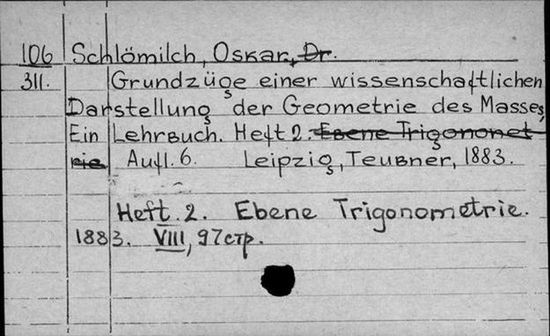 106 Schlömilch, Oskar, Dr.
311. Grundzüge einer wissenschaftlichen
Darstellung der Geometrie des Masses,
Ein Lehrbuch. Heft 2. Ebene Trigonomet
rie Aufl. 6. Leipzig, Teubner, 1883.
Heft. 2. Ebene Trigonometrie.
1883. VIII, 97 стр.